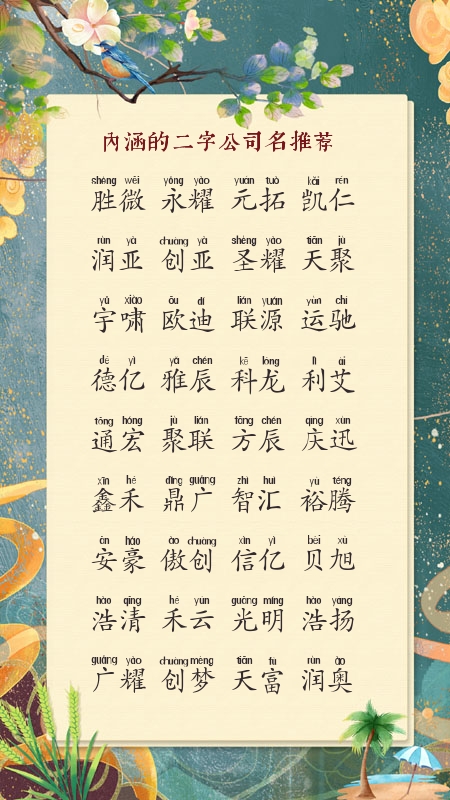 內涵的二字公司名推荐
shèng wēi yǒng yào yuán tuò kǎi rén
胜微 永耀 元拓 凯仁
rùn yà chuàng yà shèng yào tiān jù
润亚 创亚 圣耀 天聚
yǔ xiào ōu dí lián yuán yùn chí
宇啸 欧迪 联源 运驰
dé yì yǎ chén kē lóng lì ài
德亿 雅辰 科龙 利艾
tōng hóng jù lián fāng chén qìng xùn
通宏 聚联 方辰 庆迅
xīn hé dǐng guǎng zhì huì yù téng
鑫禾 鼎广 智汇 裕腾
ān háo ào chuàng xìn yì bèi xù
安豪 傲创 信亿 贝旭
hào qīng hé yún guāng míng hào yáng
浩清 禾云 光明 浩扬
guǎng yào chuàng mèng tiān fù rùn ào
广耀 创梦 天富 润奥